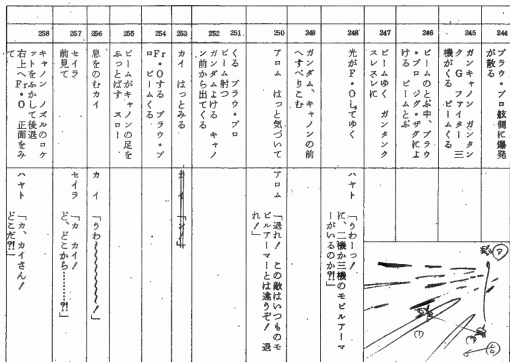 244
ブラウ・ブロ舷側に爆発
が散る
245
ガンキャノン ガンタン
ク Gファイター 三
機がくる ビームくる
246
ビームのとぶ中、ブラウ
・ブロ・ジグ・ザグによ
ける ビームとぶ
247
ビームゆく ガンタンク
スレスレに
248
光がF・Oしてゆく
ハヤト 「うわーっ！
に、二機か三機のモビルアーマ
ーがいるのか⁈」
249
ガンダム、キャノンの前
へすべりこむ
250
アロム はっと気づいて
アロム 「退れ！ この敵はいつものモ
ビルアーマーとは違うぞ！ 退
れ！」
251
くる ブラウ・ブロ
ビーム射つ
252
ガンダムよける キャノ
ン前から出てくる
253
カイ はっとみる
カイ 「ン！」
254
Fr・Oする ブラウ・ブ
ロ ビームくる
255
ビームがキャノンの足を
ふっとばす スロー
256
息をのむカイ
カイ 「うわ〜〜〜〜〜〜！」
257
セイラ
前見て
セイラ 「カ カイ！
ど、どこから……⁈」
258
キャノン ノズルのロケ
ットをふかして後退
右上へFr・O 正面をみ
て
ハヤト 「カ、カイさん！
どこだ⁈」